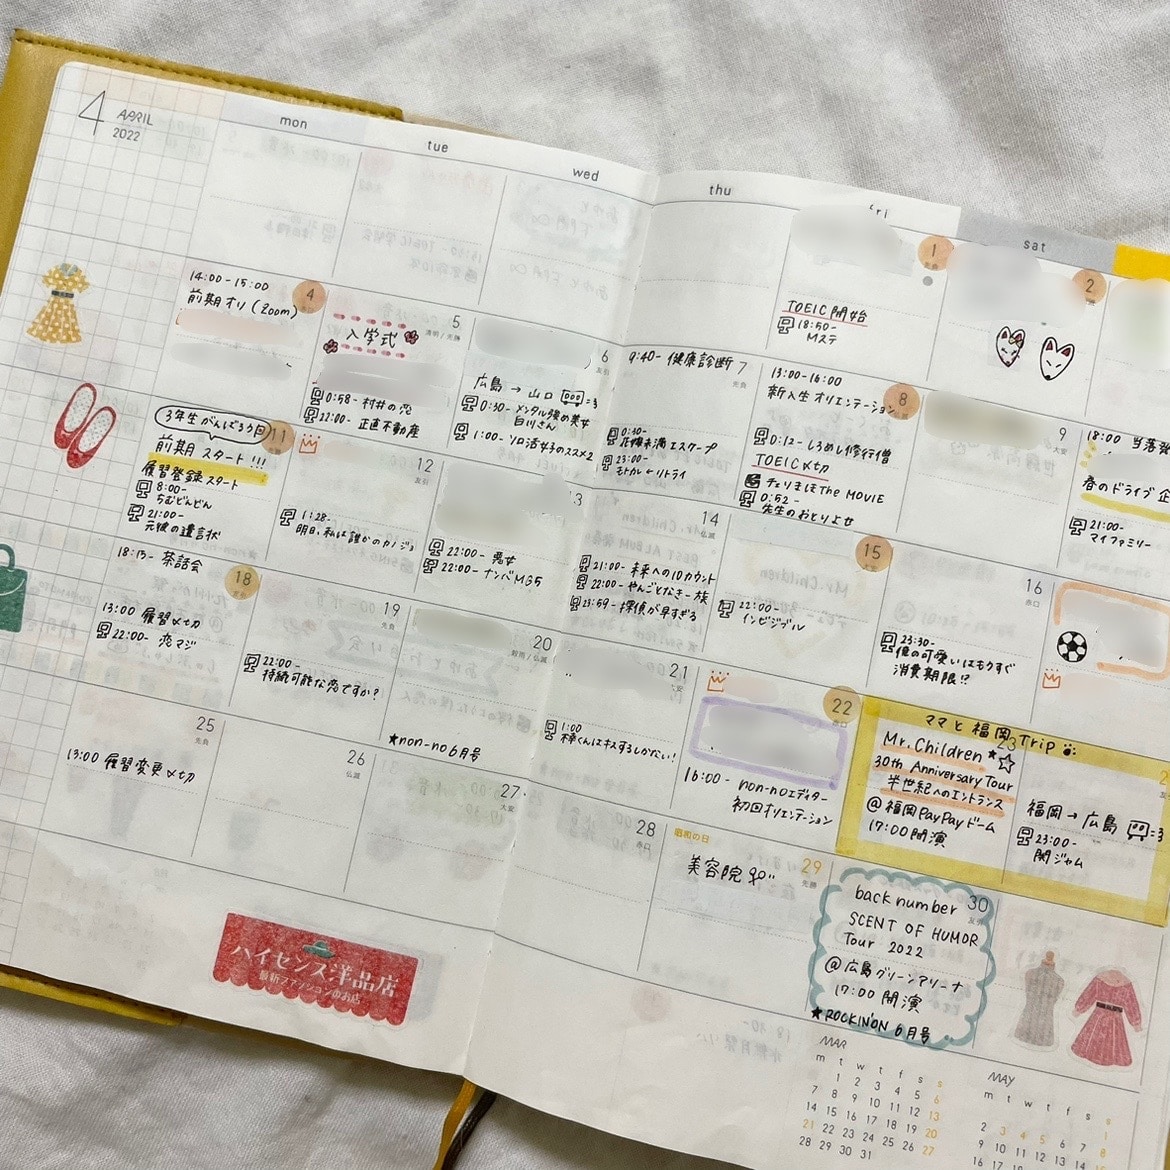 4 APRIL
2022
mon
tue
wed
thu
fri
sat
1
先負
TOEIC開始
18:50-
Mステ
2
4
14:00-15:00
前期オリ(Zoom)
5
清明/先勝
入学式
0:58- 村井の恋
22:00- 正直不動産
6
友引
広島→山口
0:30- メンタル強め美女
白川さん
1:00- ソロ活女子のススメ2
7
先負
9:40- 健康診断
0:30-
花嫁未満エスケープ
23:00-
もトカレ←リトライ
8
13:00-16:00
新入生オリエンテーション
0:12- しろめし修行僧
TOEIC〆切
チェリまほThe MOVIE
0:52-
先生のおとりよせ
9
大安
18:00
春のドライブ
21:00-
マイファミリー
11
3年生がんばるぅ回
前期スタート!!!
履習登録スタート
8:00-
ちむどんどん
21:00-
元彼の遺言状
12
友引
1:28-
明日、私は誰かのカノジョ
13
22:00- 悪女
22:00- ナンバMG5
14
21:00- 未来への10カウント
22:00- やんごとなき一族
23:59- 探偵が早すぎる
15
22:00-
インビジブル
16
赤口
23:30-
僕の可愛いはもうすぐ
消費期限!?
18
18:15- 茶話会
13:00 履習〆切
22:00- 恋マジ
19
先負
22:00-
持続可能な恋ですか?
20
穀雨/仏滅
★non-no6月号
21
大安
1:00
本くんはキスするしかない!
22
赤口
16:00- non-noエディター
初回オリエンテーション
ママと福岡Trip
23
Mr.Children
30th Anniversary Tour
半世紀へのエントランス
@福岡PayPayドーム
17:00開演
福岡→広島
23:00-
関ジャム
25
先負
13:00 履習変更〆切
26
仏滅
27
大安
28
赤口
昭和の日
29
先勝
美容院
30
友引
back number
SCENT OF HUMOR
Tour 2022
@広島グリーンアリーナ
17:00開演
★ROCKIN'ON 6月号
ハイセンス洋品店
最新ファッションのお店
MAR
m t w t f s s
1 2 3 4 5 6
7 8 9 10 11 12 13
14 15 16 17 18 19 20
21 22 23 24 25 26 27
28 29 30 31
MAY
m t w t f s s
1
2 3 4 5 6 7 8
9 10 11 12 13 14
16 17 18 19